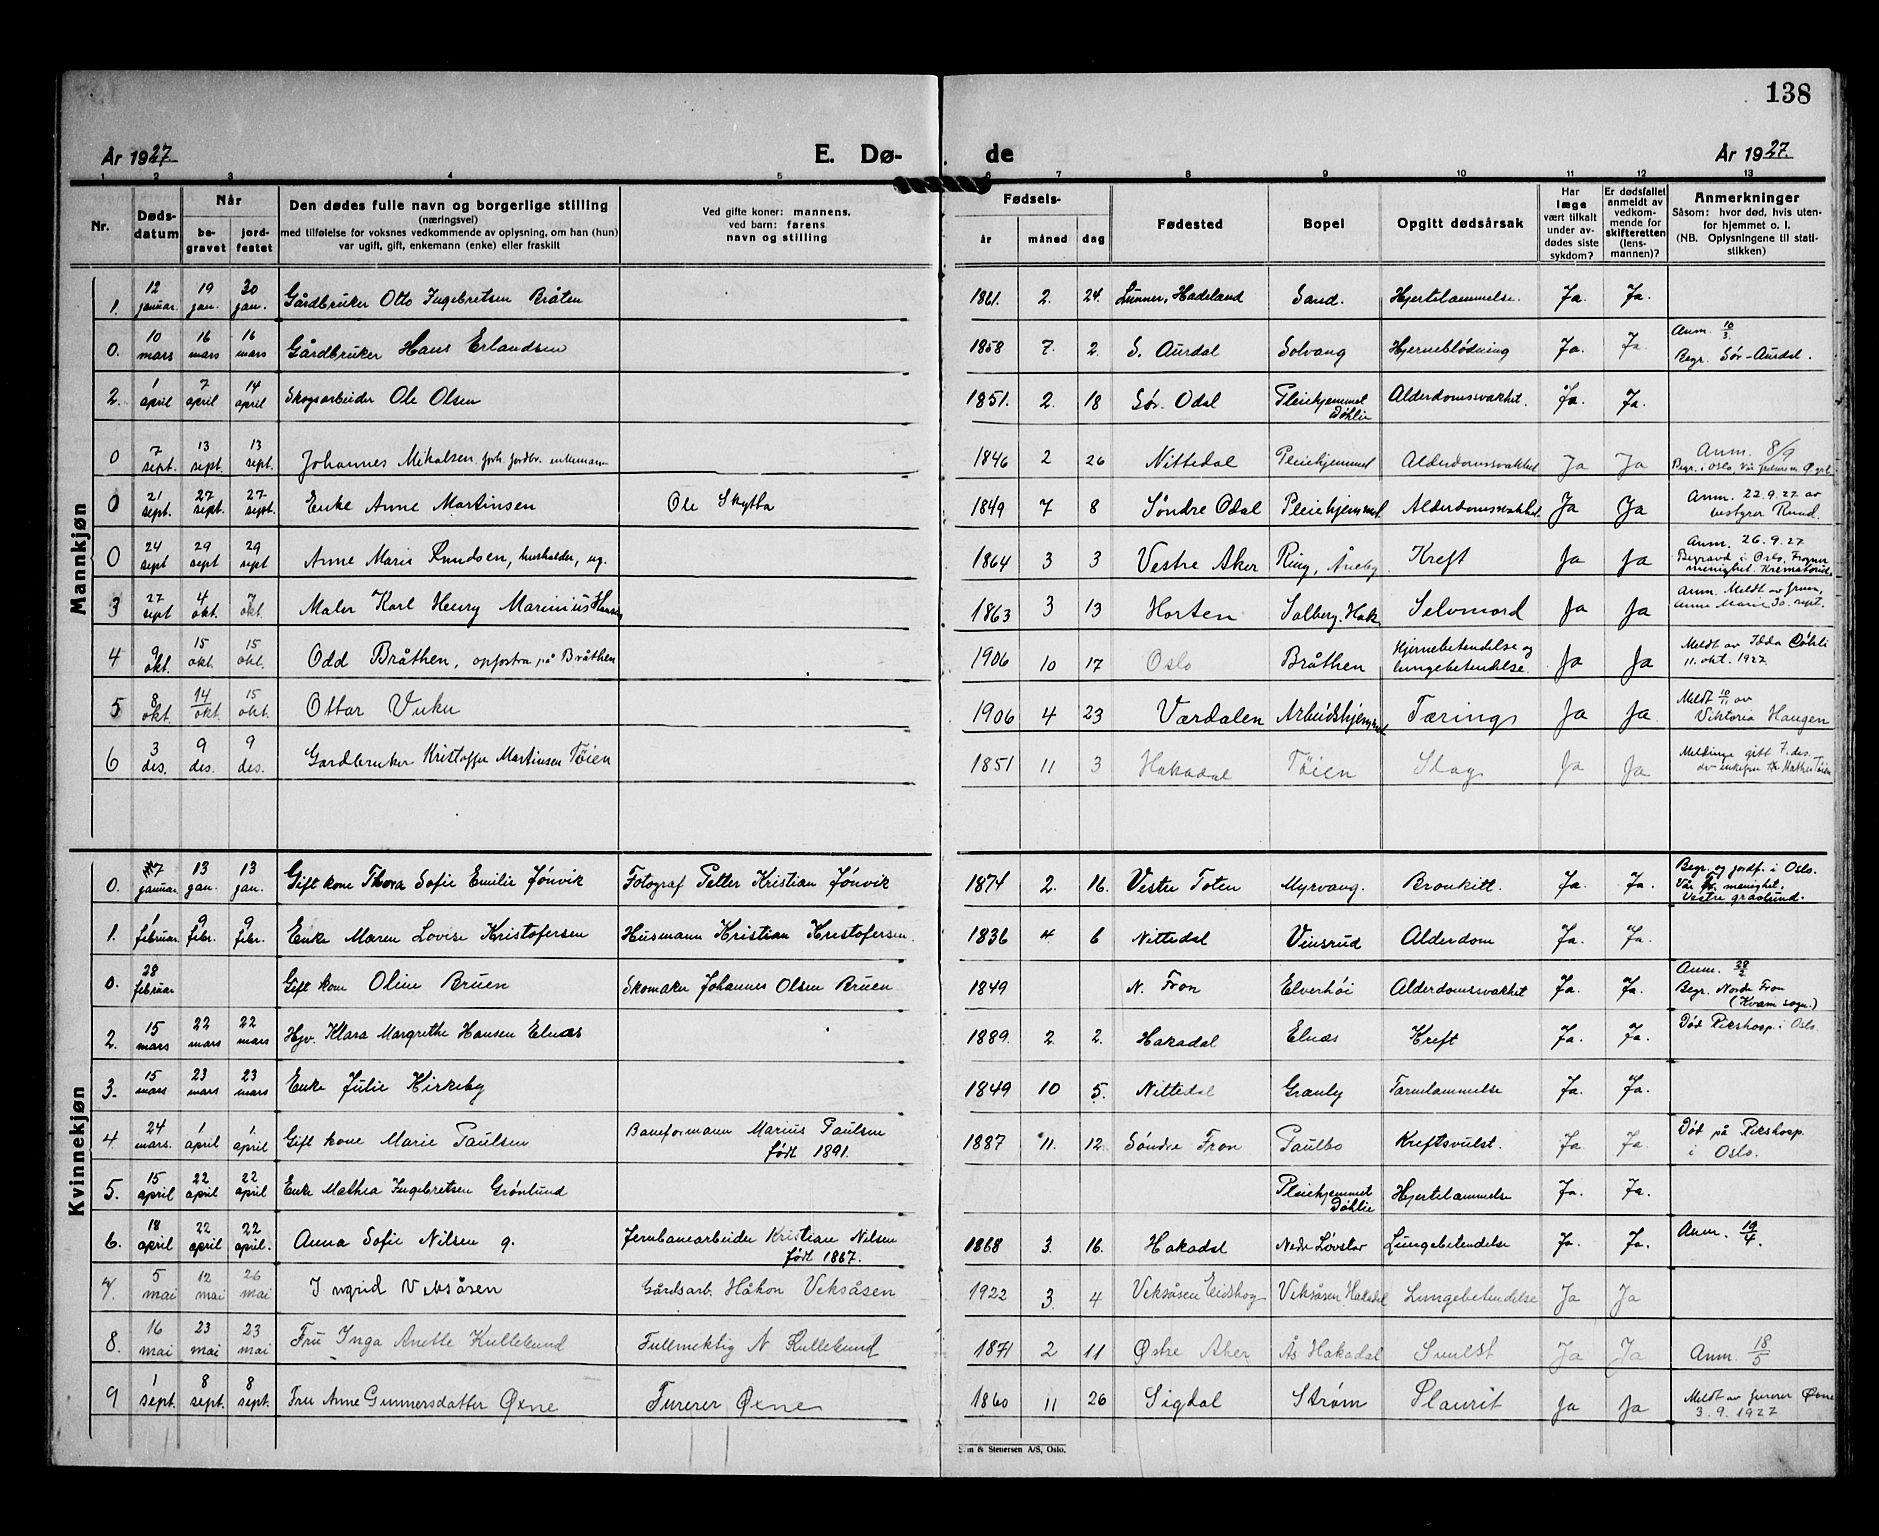 138
År 1927
E. Dø-
de
År 1927.
1 2 3 4 5 6 7 8 9 10 11 12 13
Nr.
Døds-
datum
Når
be-
gravet
jord-
festet
Den dødes fulle navn og borgerlige stilling
(næringsvei)
med tilføielse for voksnes vedkommende av oplysning, om han (hun)
var ugift, gift, enkemann (enke) eller fraskilt
Ved gifte koner: mannens,
ved barn: farens
navn og stilling
Fødsels-
år
måned
dag
Fødested
Bopel
Opgitt dødsårsak
Har
læge
vært tilkalt
under av-
dødes siste
sykdom?
Er dødsfallet
anmeldt av
vedkom-
mende for
skifteretten
(lens-
mannen)?
Anmerkninger
Såsom: hvor død, hvis uten-
for hjemmet o. l.
(NB. Oplysningene til stati-
stikken)
Mannkjøn
1. 12 januar. 19 jan. 30 jan. Gårdbruker Otto Ingebretsen Bråten 1861. 2. 24. Lunner, Hadeland Sand. Hjertelammelse. Ja. Ja.
0. 10 mars 16 mars 16 mars Gårdbruker Hans Erlandsen 1858 7. 2. S. Aurdal Solvang Hjerneblødning Ja. Ja. Anm. 10/3.
Begr. Sør-Aurdal.
2. 1 april 7 april 14 april Skogsarbeider Ole Olsen 1851. 2. 18 Sør. Odal Pleiehjemmet
Døhlie Alderdomssvakhet. Ja. Ja.
0 7 sept. 13 sept. 13 sept. Johannes Mikalsen forh. jordbr. enkemann 1846 2 26 Nittedal Pleiehjemmet Alderdomssvakhet Ja Ja Anm. 8/9
Begr. i Oslo, Vår
0 21 sept. 27 sept. 27 sept. Enke Anne Martinsen Ole Skytta 1849 7 8 Søndre Odal Pleiehjemmet Alderdomssvakhet. Ja Ja Anm. 22.9.27 av
bestyrer Ruud.
0 24 sept 29 sept 29 sept Anne Marie Knudsen, husholder, ug. 1864 3 3 Vestre Aker Ring, Åneby. Kreft Ja Ja Anm. 26.9.27
Begravd i Oslo, Frogner
menighet. Krematoriet
3 27 sept 4 okt. 7 okt. Maler Karl Henry Marinius Hansen 1863 3 13 Horten Solberg. Hak. Selvmord Ja Ja Anm. Meldt av
Anne Marie 30. sept.
4 9 okt. 15 okt. 15 okt. Odd Bråthen, opfostra på Bråthen 1906 10 17 Oslo Bråthen Hjernebetendelse og
lungebetendelse. Ja Ja Meldt av Døhli
11. okt. 1927
5 8 okt. 14 okt. 15 okt. Ottar Vuku 1906 4 23 Værdalen Arbeidshjemmet. Tærings Ja Ja Meldt 10/11 av
Viktoria Haugen
6 3 des. 9 des. 9 des. Gardbruker Kristoffer Martinsen Tøien 1851 11 3 Hakadal Tøien Slag Ja Ja Meldinga gitt 7. des.
Mathea Tøien
Kvinnekjøn
0. 7 januar. 13 jan. 13 jan. Gift kone Thora Sofie Emilie Jønvik Fotograf Petter Kristian Jønvik 1874 2. 16. Vestre Toten Myrvang. Bronkitt. Ja. Ja. Begr. og jordf. i Oslo.
Vår menighet.
Vestre gravlund.
1. 1 februar. 9 febr. 9 febr. Enke Maren Lovise Kristofersen Husmann Kristian Kristofersen. 1836 4 6 Nittedal Vinsrud Alderdom Ja. Ja.
0. 28 februar Gift kone Oline Bruen Skomaker Johannes Olsen Bruen 1849 N. Fron Elverhøi Alderdomssvakhet Ja. Ja. Anm. 28/2
Begr. Nordre Fron
(Kvam sogn.)
2. 15 mars 22 mars 22 mars Hjv. Klara Margrethe Hansen Elnæs 1889. 2. 2. Hakadal Elnæs Kreft Ja. Ja. Død Rikshosp. i Oslo.
3. 15 mars 23 mars 23 mars Enke Julie Kirkeby 1849 10 5. Nittedal Granly Tarmlammelse Ja. Ja.
4. 24 mars. 1 april 1 april Gift kone Marie Paulsen Baneformann Marius Paulsen
født 1891. 1887 11. 12. Søndre Fron Paulbo Kreftsvulst. Ja Ja. Død på Rikshosp.
i Oslo.
5. 15 april 22 april 22 april Enke Mathea Ingebretsen Grønlund Pleiehjemmet
Døhlie Hjertelammelse Ja. Ja.
6. 18 april 22 april 22 april. Anna Sofie Nilsen g. Jernbanearbeider Kristian Nilsen
født 1867. 1868 3. 16. Hakadal Nedre Løvstad Lungebetendelse Ja. Ja. Anm. 19/4.
7. 5 mai 12 mai 26 mai Ingrid Veksåsen Gårdsarb. Håkon Veksåsen 1922 3. 4 Veksåsen Eidskog Veksåsen Hakadal Lungebetendelse Ja Ja
8. 16 mai 23 mai 23 mai Fru Inga Anette Kullelund Fullmektig N Kullelund 1871 2 11 Østre Aker Ås Hakadal Svulst Ja Ja Anm. 18/5
9 1 sept. 8 sept. 8 sept. Fru Anne Gunnersdatter Øxne Furerer Øxne 1860 11 26 Sigdal Strøm Plaurit Ja Ja Meldt av furerer Øxne
3.9.1927
& Stenersen A/S, Oslo.